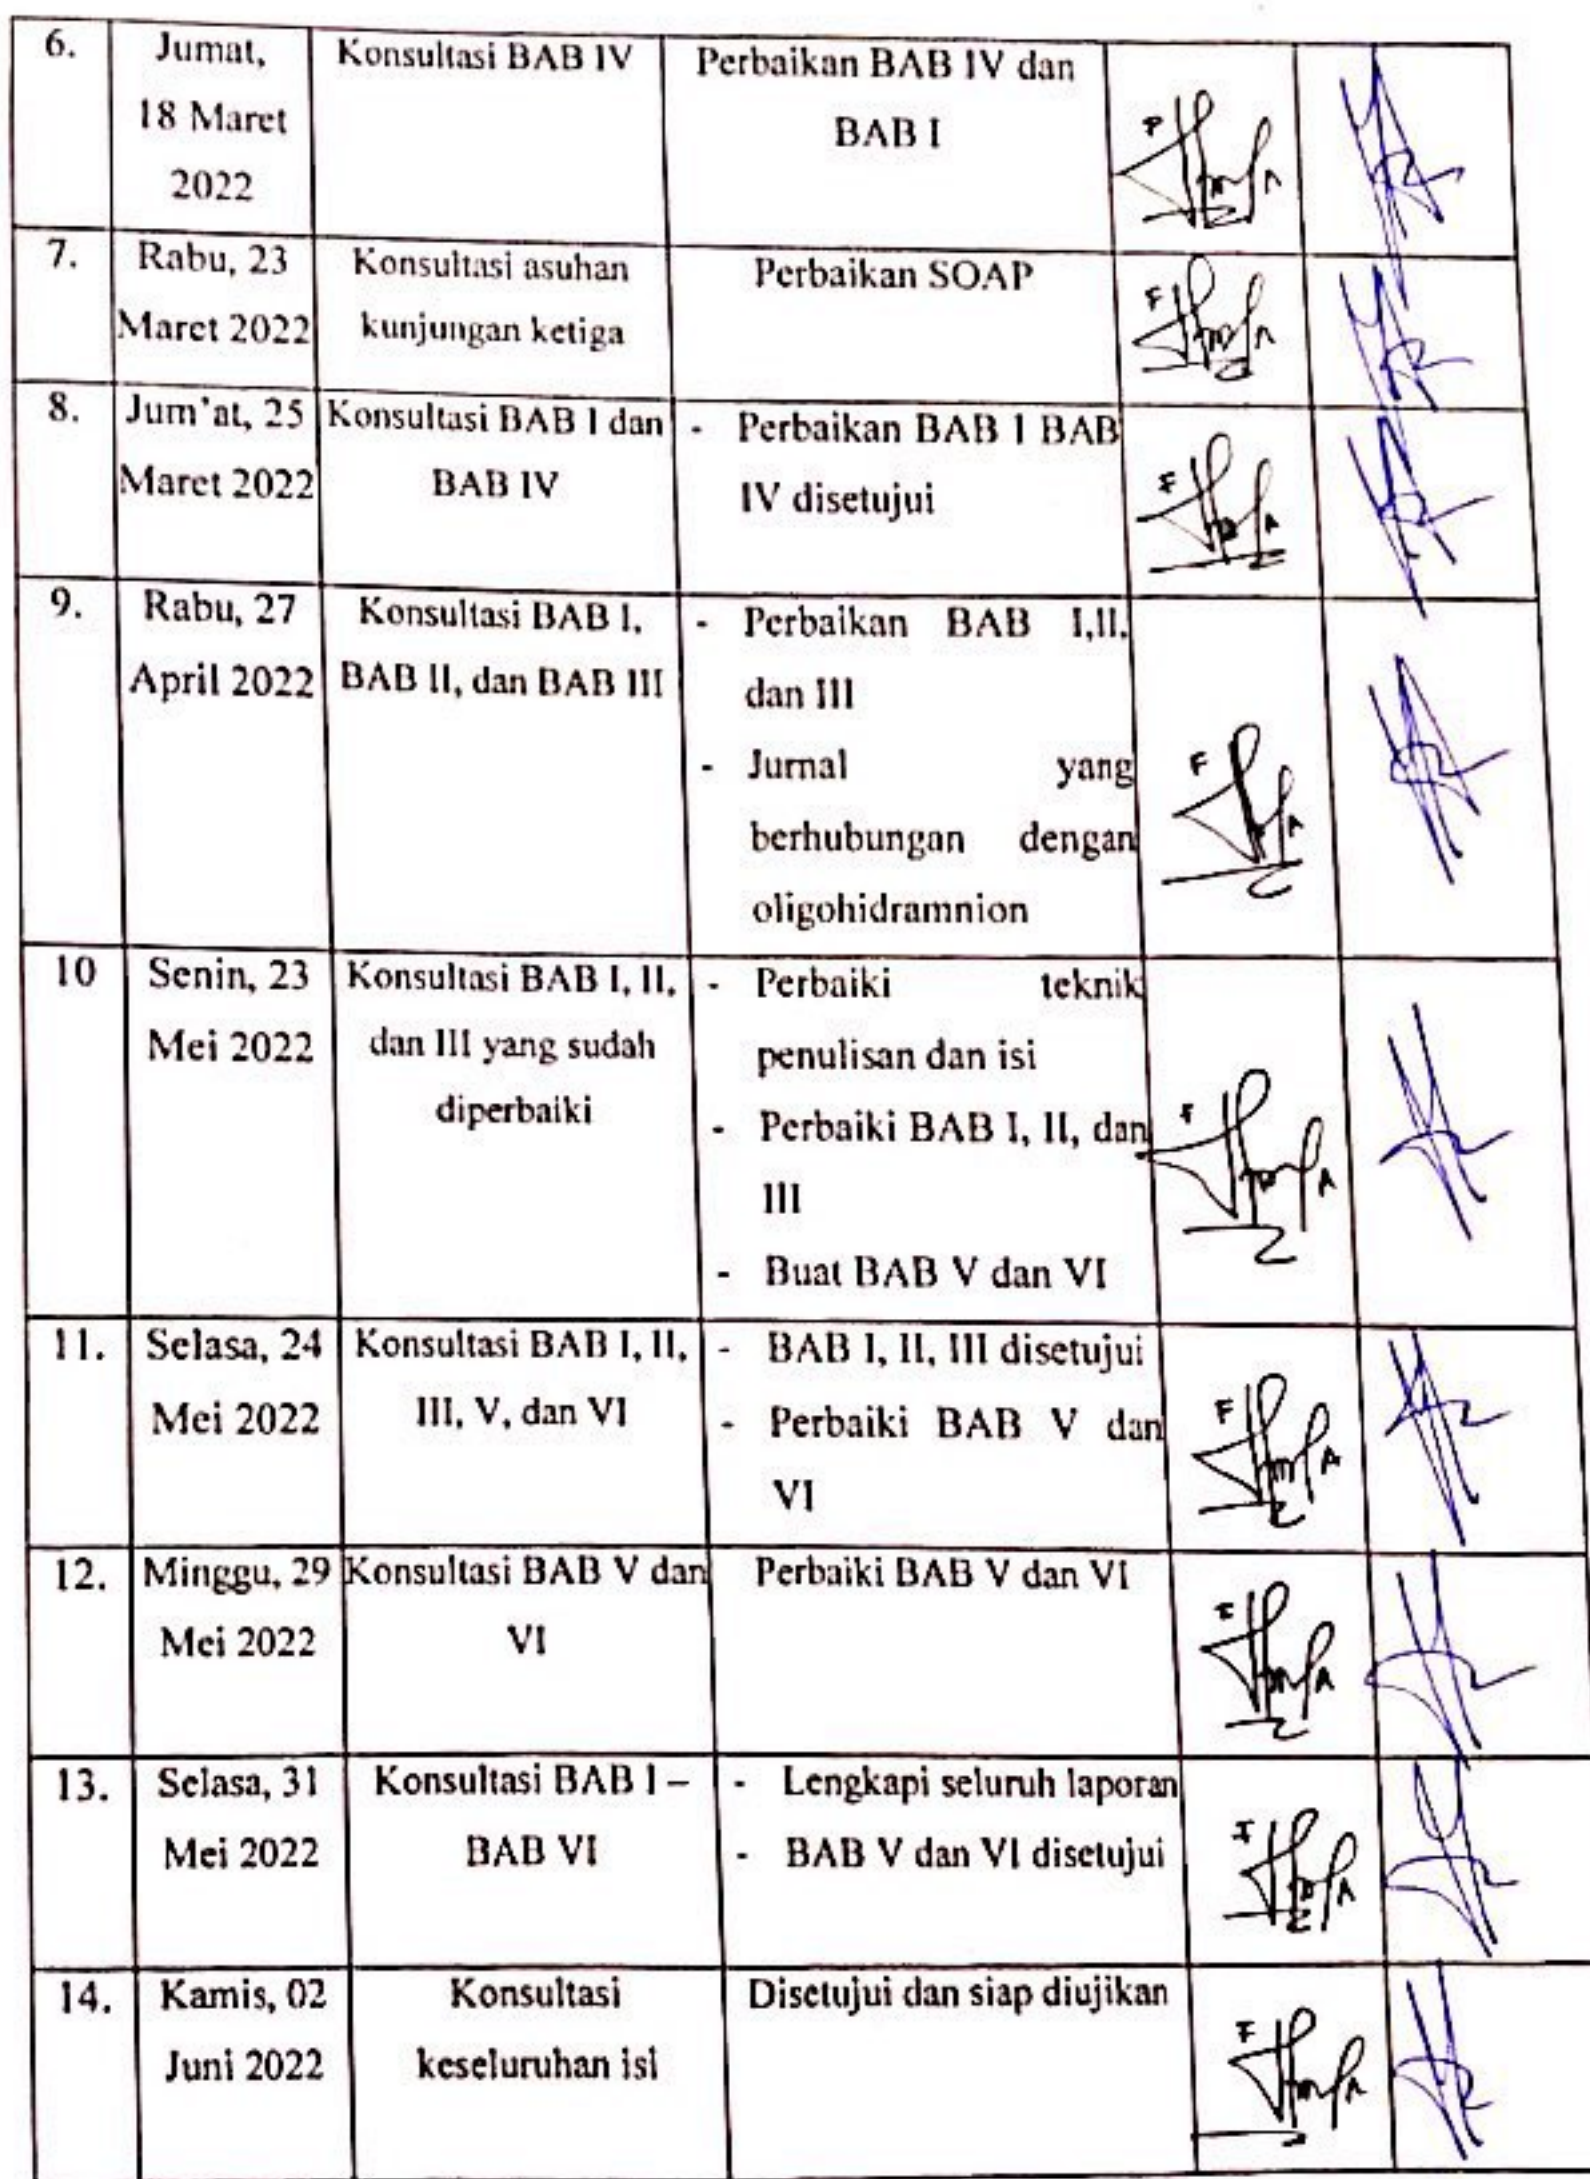 6.
Jumat,
18 Maret
2022
Konsultasi BAB IV
Perbaikan BAB IV dan
BAB I
7.
Rabu, 23
Maret 2022
Konsultasi asuhan
kunjungan ketiga
Perbaikan SOAP
8.
Jum'at, 25
Maret 2022
Konsultasi BAB I dan
BAB IV
- Perbaikan BAB I BAB
IV disetujui
9.
Rabu, 27
April 2022
Konsultasi BAB I,
BAB II, dan BAB III
- Perbaikan BAB I,II,
dan III
- Jurnal yang
berhubungan dengan
oligohidramnion
10
Senin, 23
Mei 2022
Konsultasi BAB I, II,
dan III yang sudah
diperbaiki
- Perbaiki teknik
penulisan dan isi
- Perbaiki BAB I, II, dan
III
- Buat BAB V dan VI
11.
Selasa, 24
Mei 2022
Konsultasi BAB I, II,
III, V, dan VI
- BAB I, II, III disetujui
- Perbaiki BAB V dan
VI
12.
Minggu, 29
Mei 2022
Konsultasi BAB V dan
VI
Perbaiki BAB V dan VI
13.
Selasa, 31
Mei 2022
Konsultasi BAB I –
BAB VI
- Lengkapi seluruh laporan
- BAB V dan VI disetujui
14.
Kamis, 02
Juni 2022
Konsultasi
keseluruhan isi
Disetujui dan siap diujikan